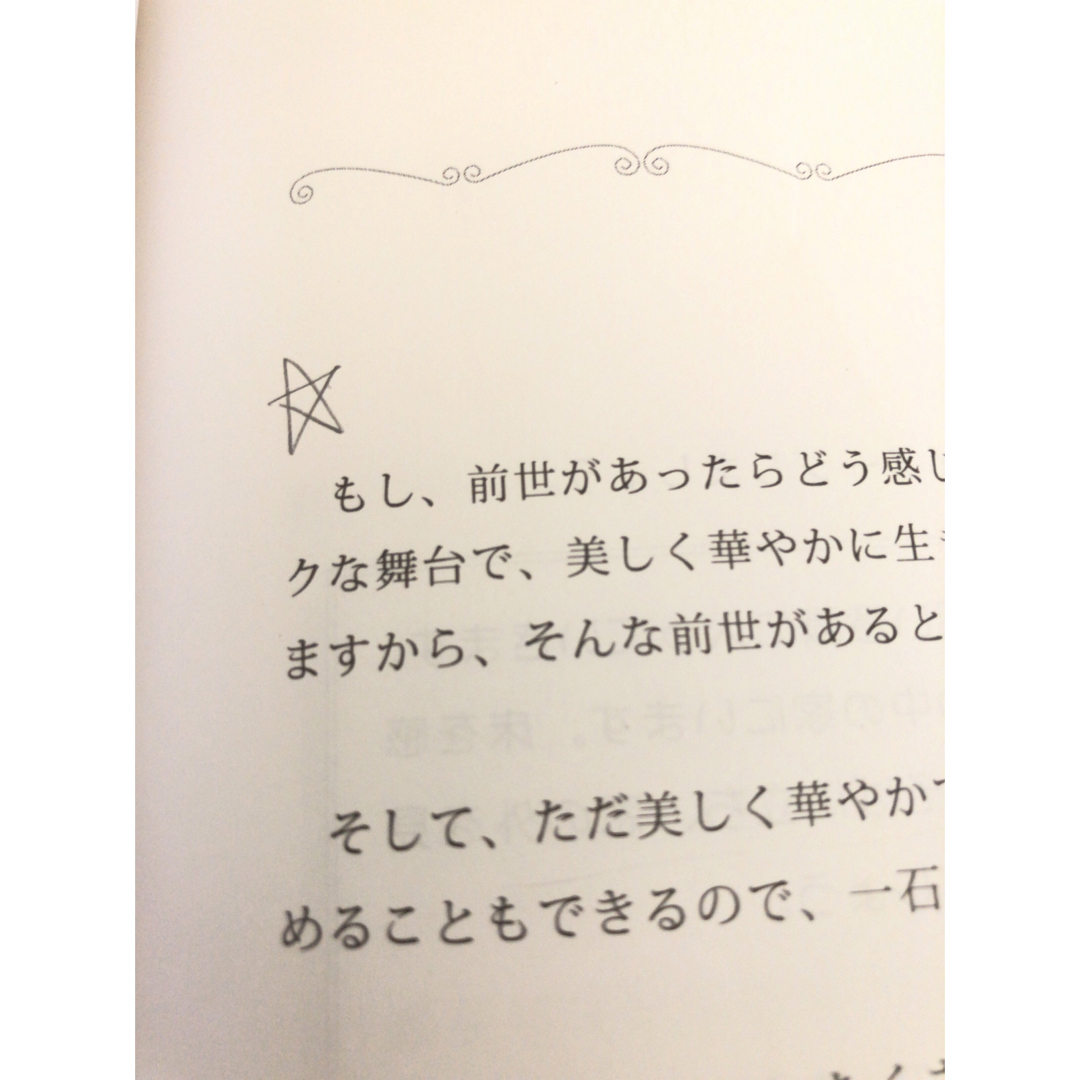 もし、前世があったらどう感じ
クな舞台で、美しく華やかに生
ますから、そんな前世があると
そして、ただ美しく華やかで
めることもできるので、一石